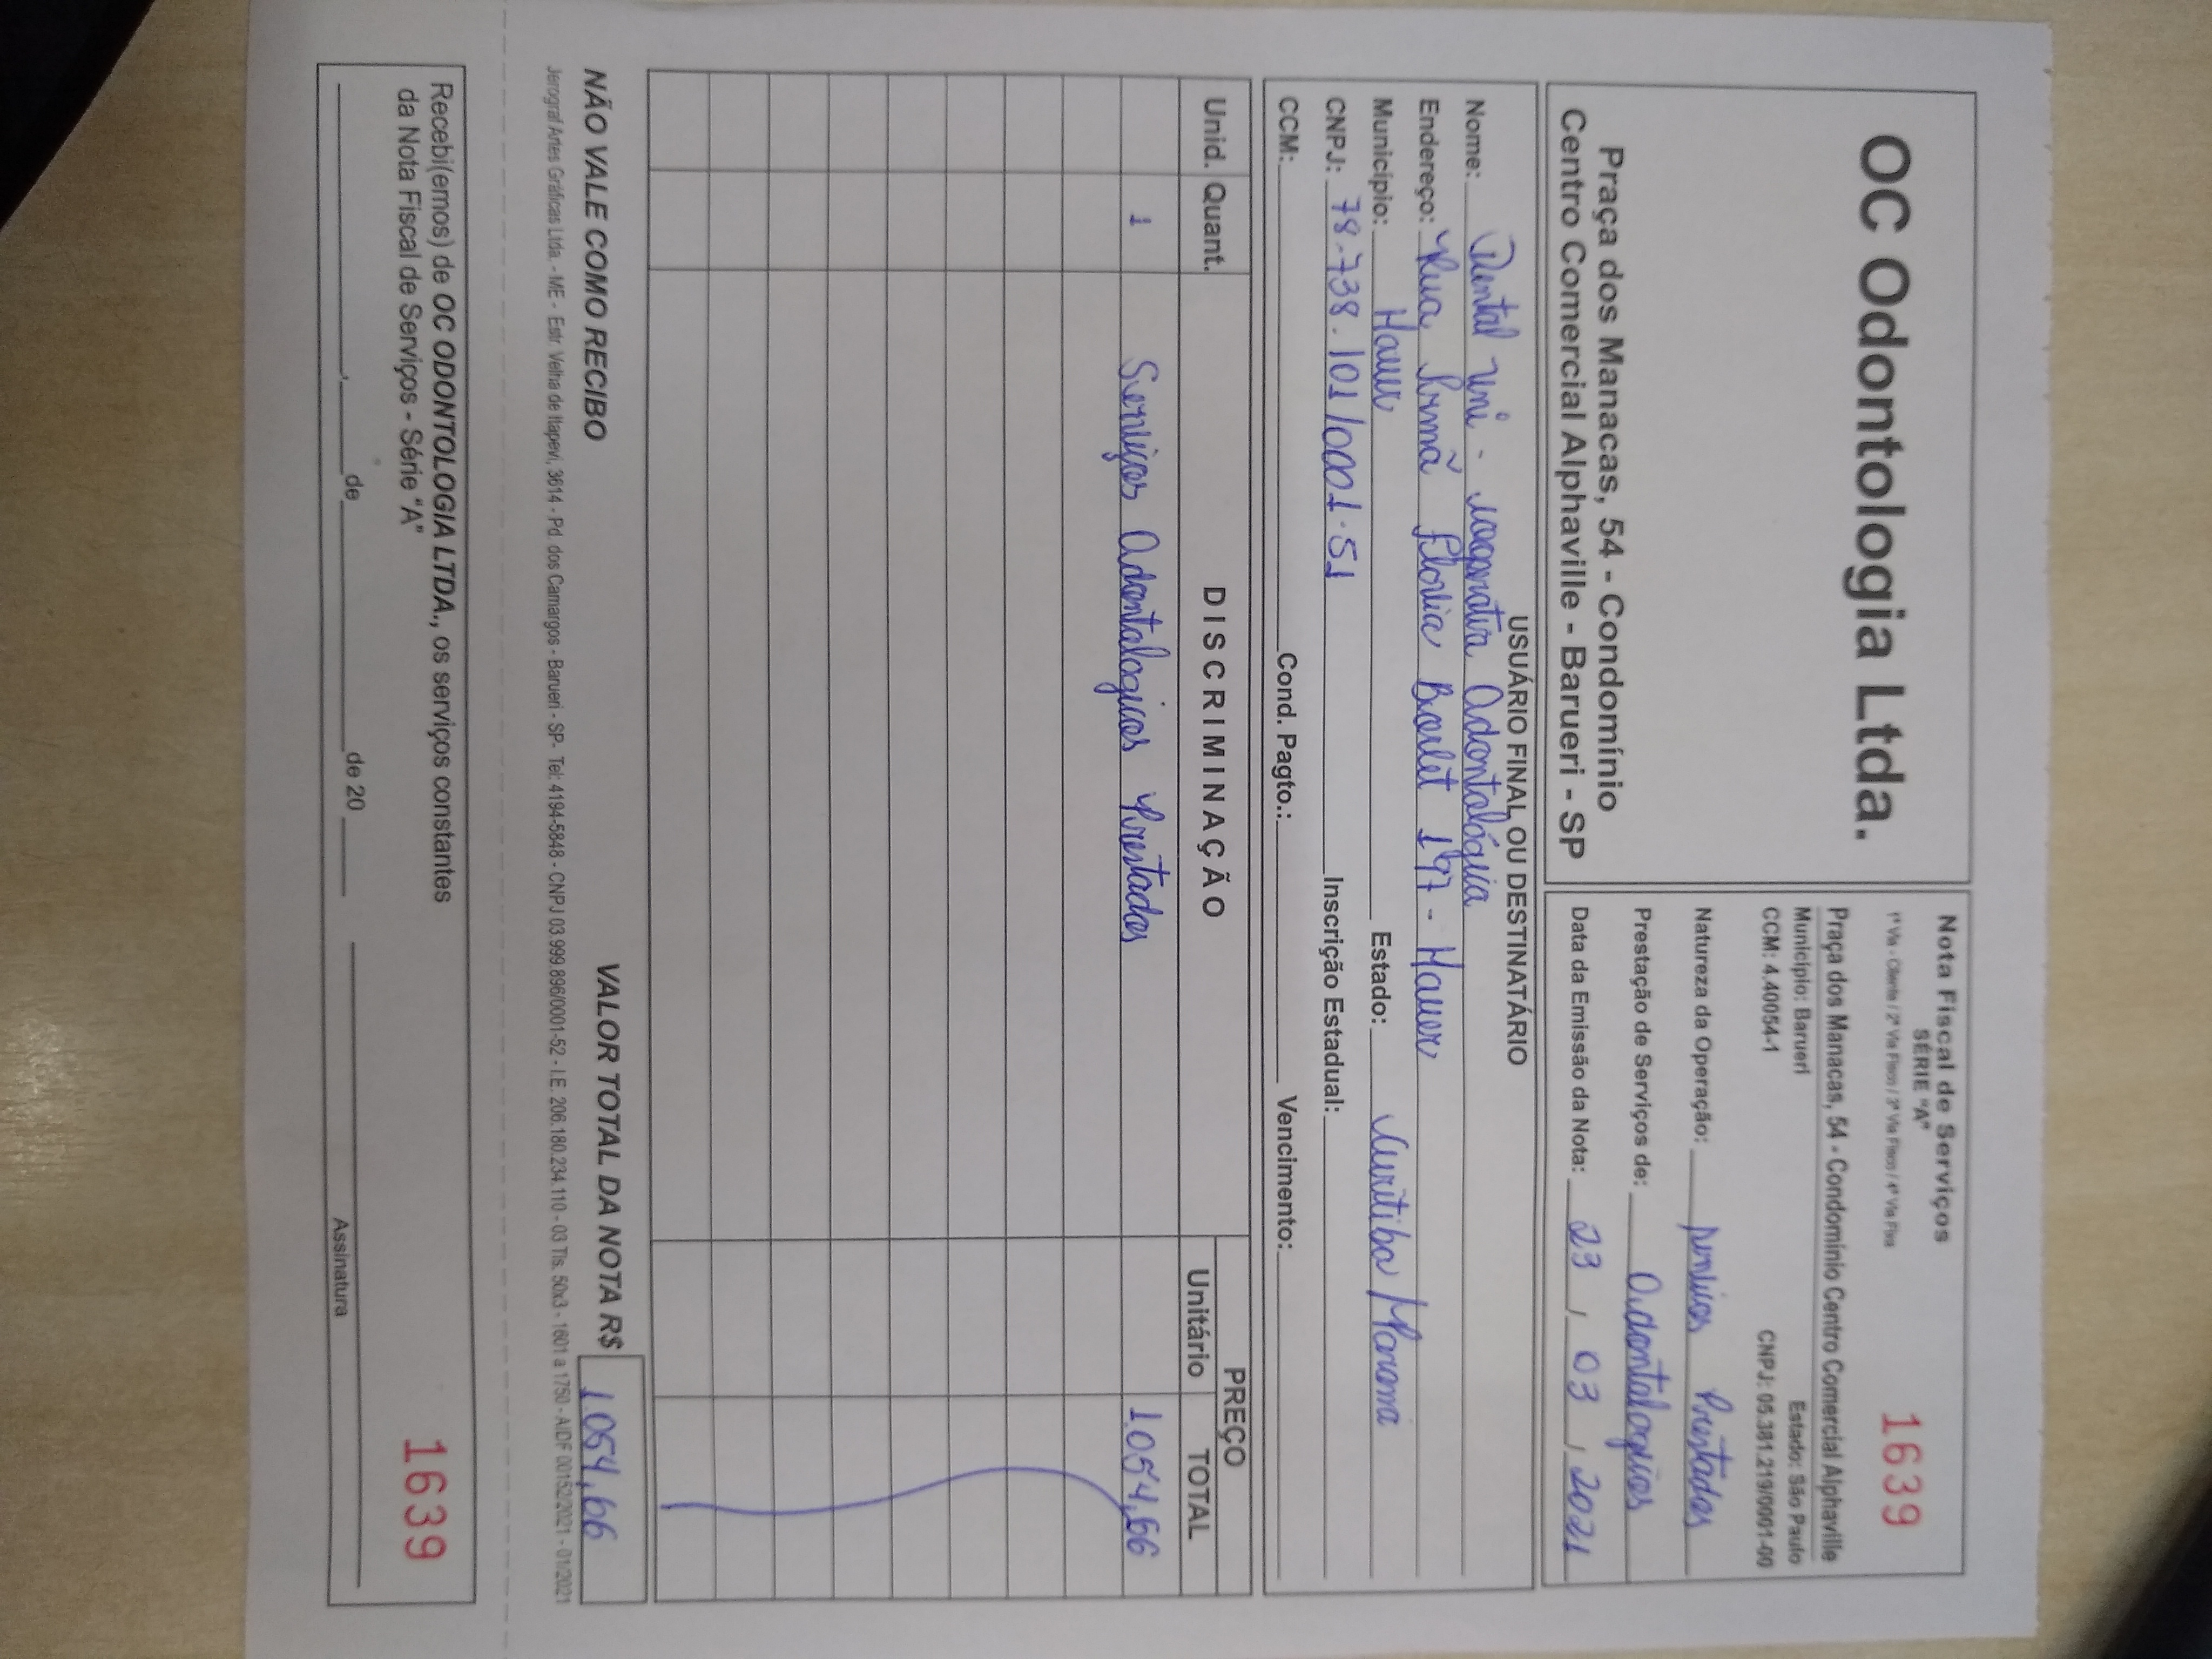 OC Odontologia Ltda.
Praça dos Manacas, 54 - Condomínio
Centro Comercial Alphaville - Barueri - SP
Nota Fiscal de Serviços
SÉRIE "A"
1ª Via - Cliente / 2ª Via Fisco / 3ª Via Fisco / 4ª Via Fixa
1639
Praça dos Manacas, 54 - Condomínio Centro Comercial Alphaville
Município: Barueri Estado: São Paulo
CCM: 4.40054-1 CNPJ: 05.381.219/0001-00
Natureza da Operação: serviços Prestados
Prestação de Serviços de: Odontologicos
Data da Emissão da Nota: 23 / 03 / 2021
USUÁRIO FINAL OU DESTINATÁRIO
Nome: Dental Uni - cooperativa Odontológica
Endereço: Rua Irmã Flávia Borlet 197 - Hauer
Município: Hauer Estado: Curitiba / Paraná
CNPJ: 78.738.101/0001.51 Inscrição Estadual:
CCM: Cond. Pagto.: Vencimento:
Unid. Quant. DISCRIMINAÇÃO PREÇO
Unitário TOTAL
1 Serviços Odontologicos Prestados 1.054,66
NÃO VALE COMO RECIBO VALOR TOTAL DA NOTA R$ 1.054,66
Jerograf Artes Gráficas Ltda. - ME - Estr. Velha de Itapevi, 3614 - Pd. dos Camargos - Barueri - SP- Tel: 4194-5848 - CNPJ 03.999.896/0001-52 - I.E. 206.180.234.110 - 03 Tls. 50x3 - 1601 a 1750 - AIDF 00152/2021 - 01/2021
Recebi(emos) de OC ODONTOLOGIA LTDA., os serviços constantes
da Nota Fiscal de Serviços - Série "A"
1639
, de de 20
Assinatura